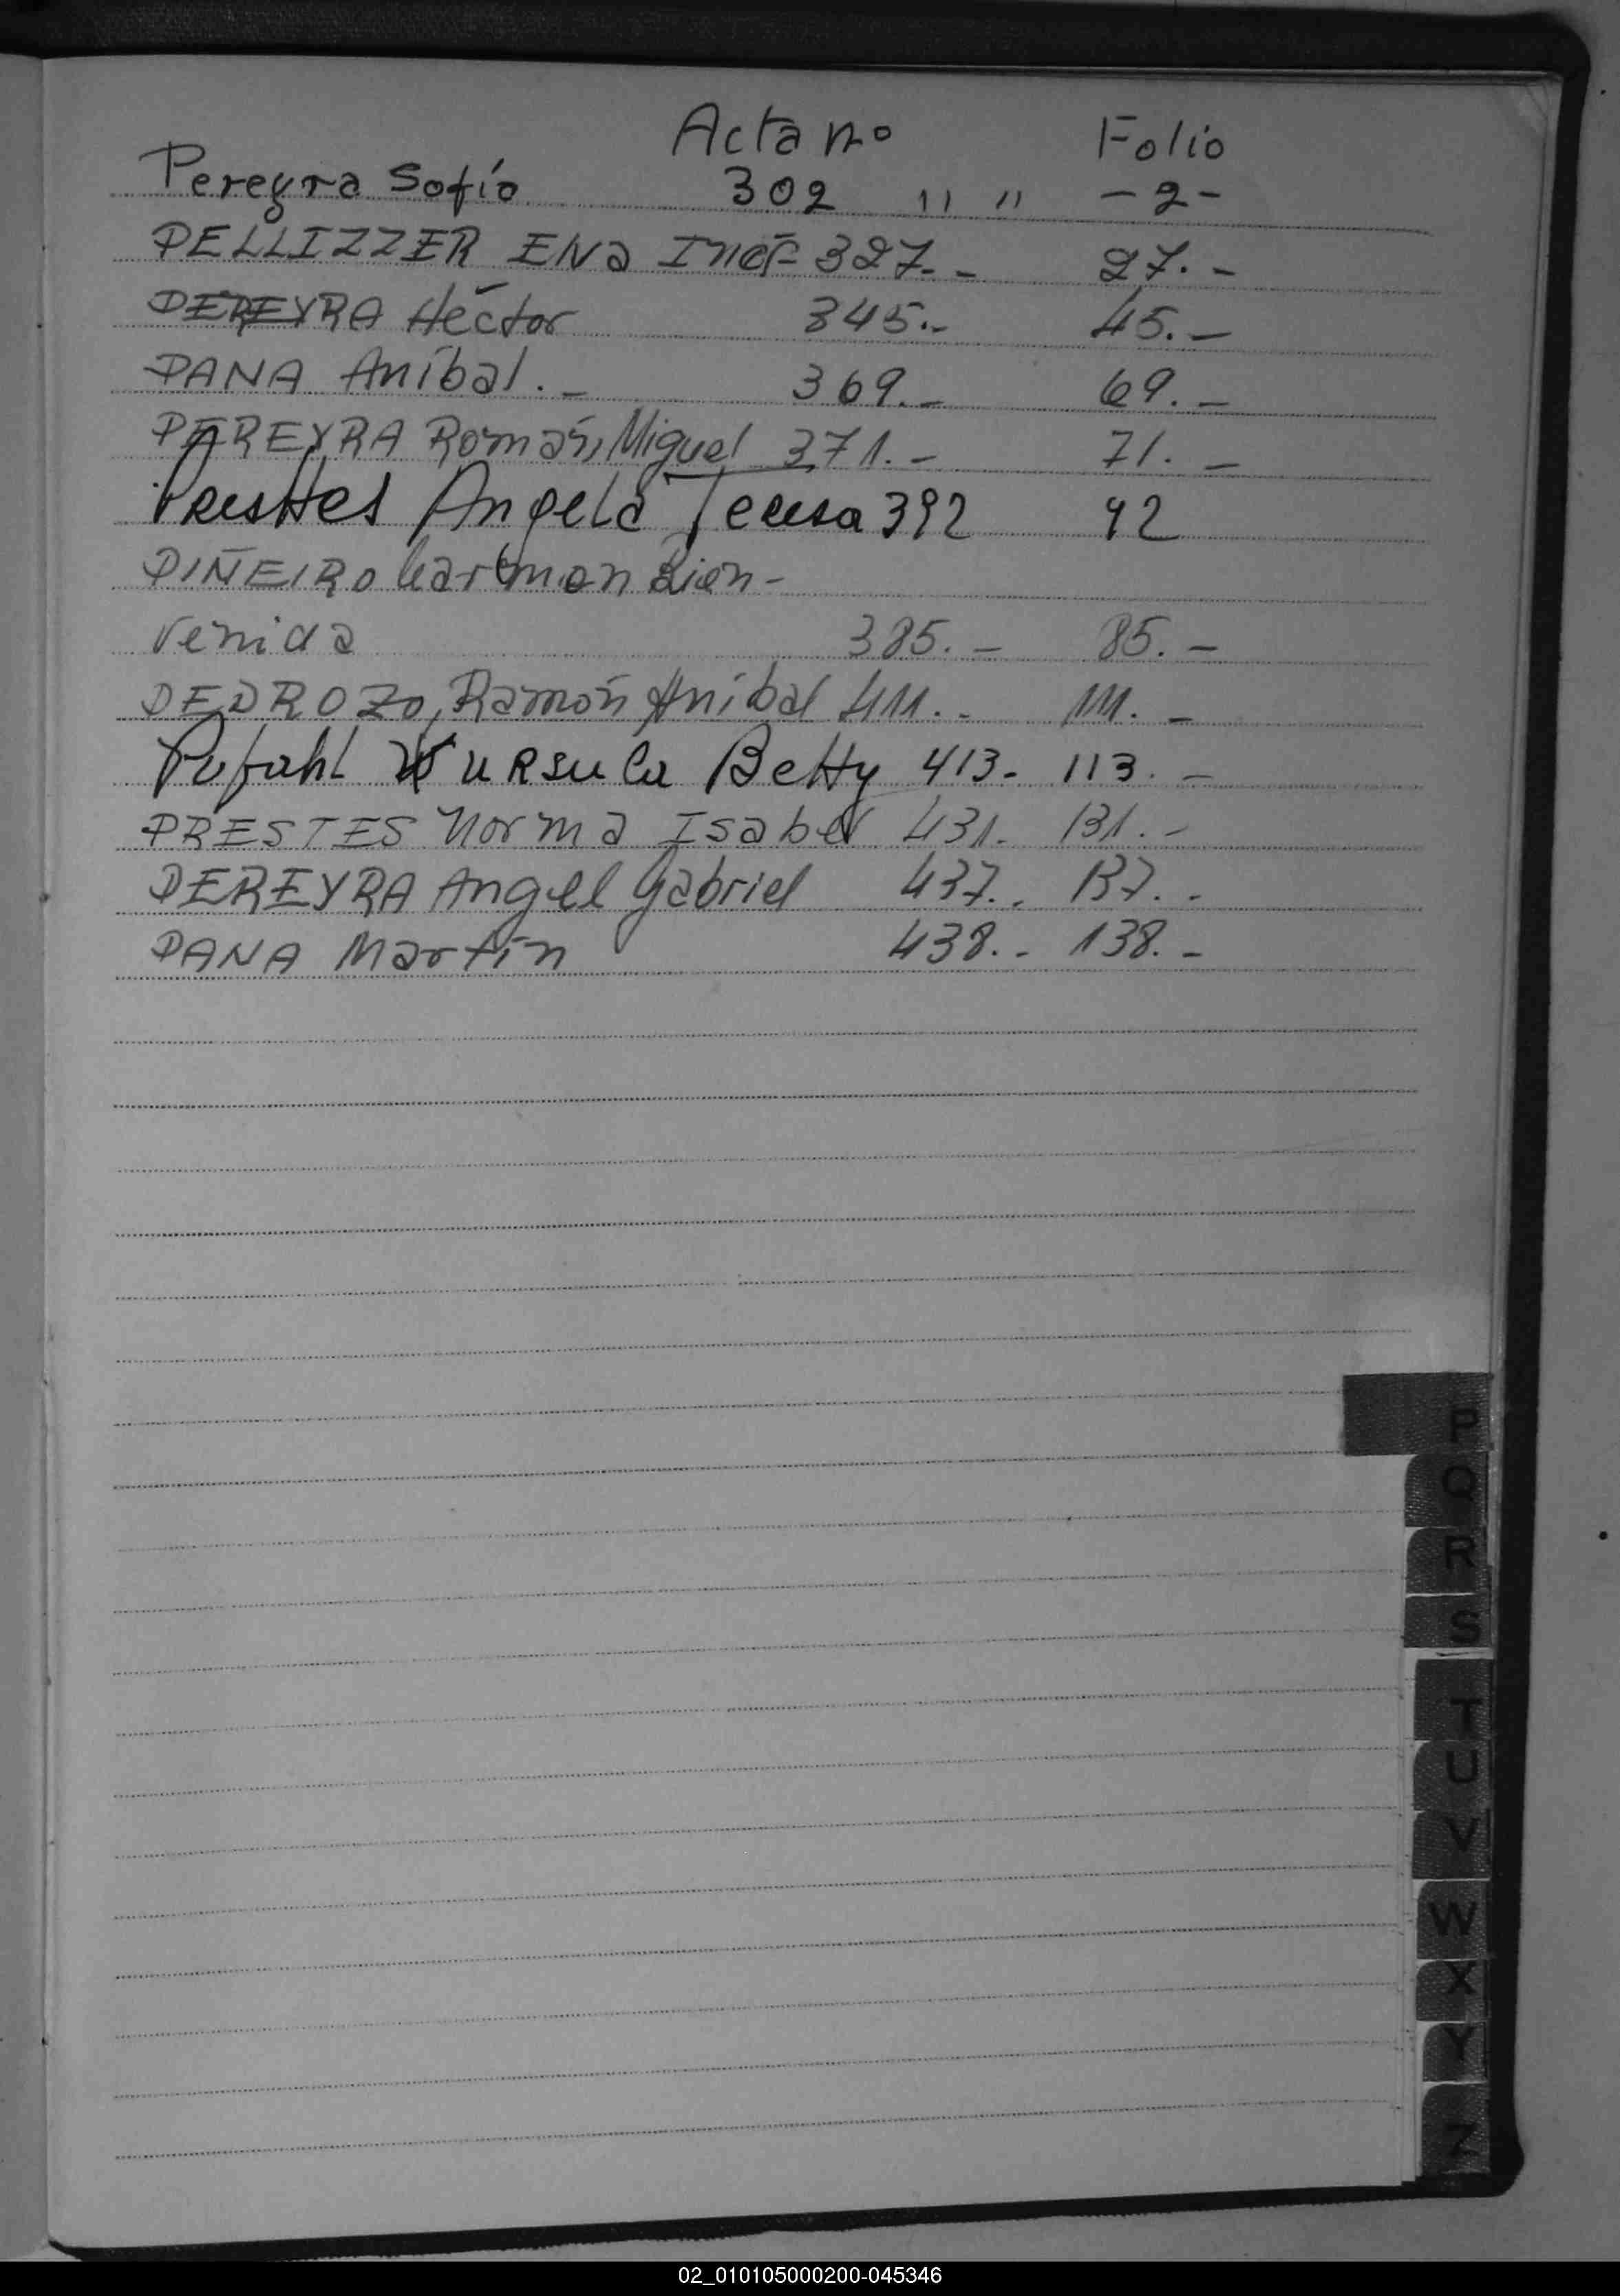 Acta nº Folio
Pereyra Sofía 302 " " - 2 -
PELLIZZER ENa Inés 327.- 27.-
PEREYRA Héctor 345.- 45.-
PANA Aníbal.- 369.- 69.-
PEREYRA Román, Miguel 371.- 71.-
Presttes Angela Teresa 392 92
PIÑEIRO Bien-
venida 385.- 85.-
PEDROZO, Ramón Anibal 411.- 111.-
Pufahl Ursula Betty 413- 113.-
PRESTES Norma Isabel 431. 131.-
PEREYRA Angel Gabriel 437.. 137..
PANA Martín 438.- 138.-
P
Q
R
S
T
U
V
W
X
Y
Z
02_010105000200-045346